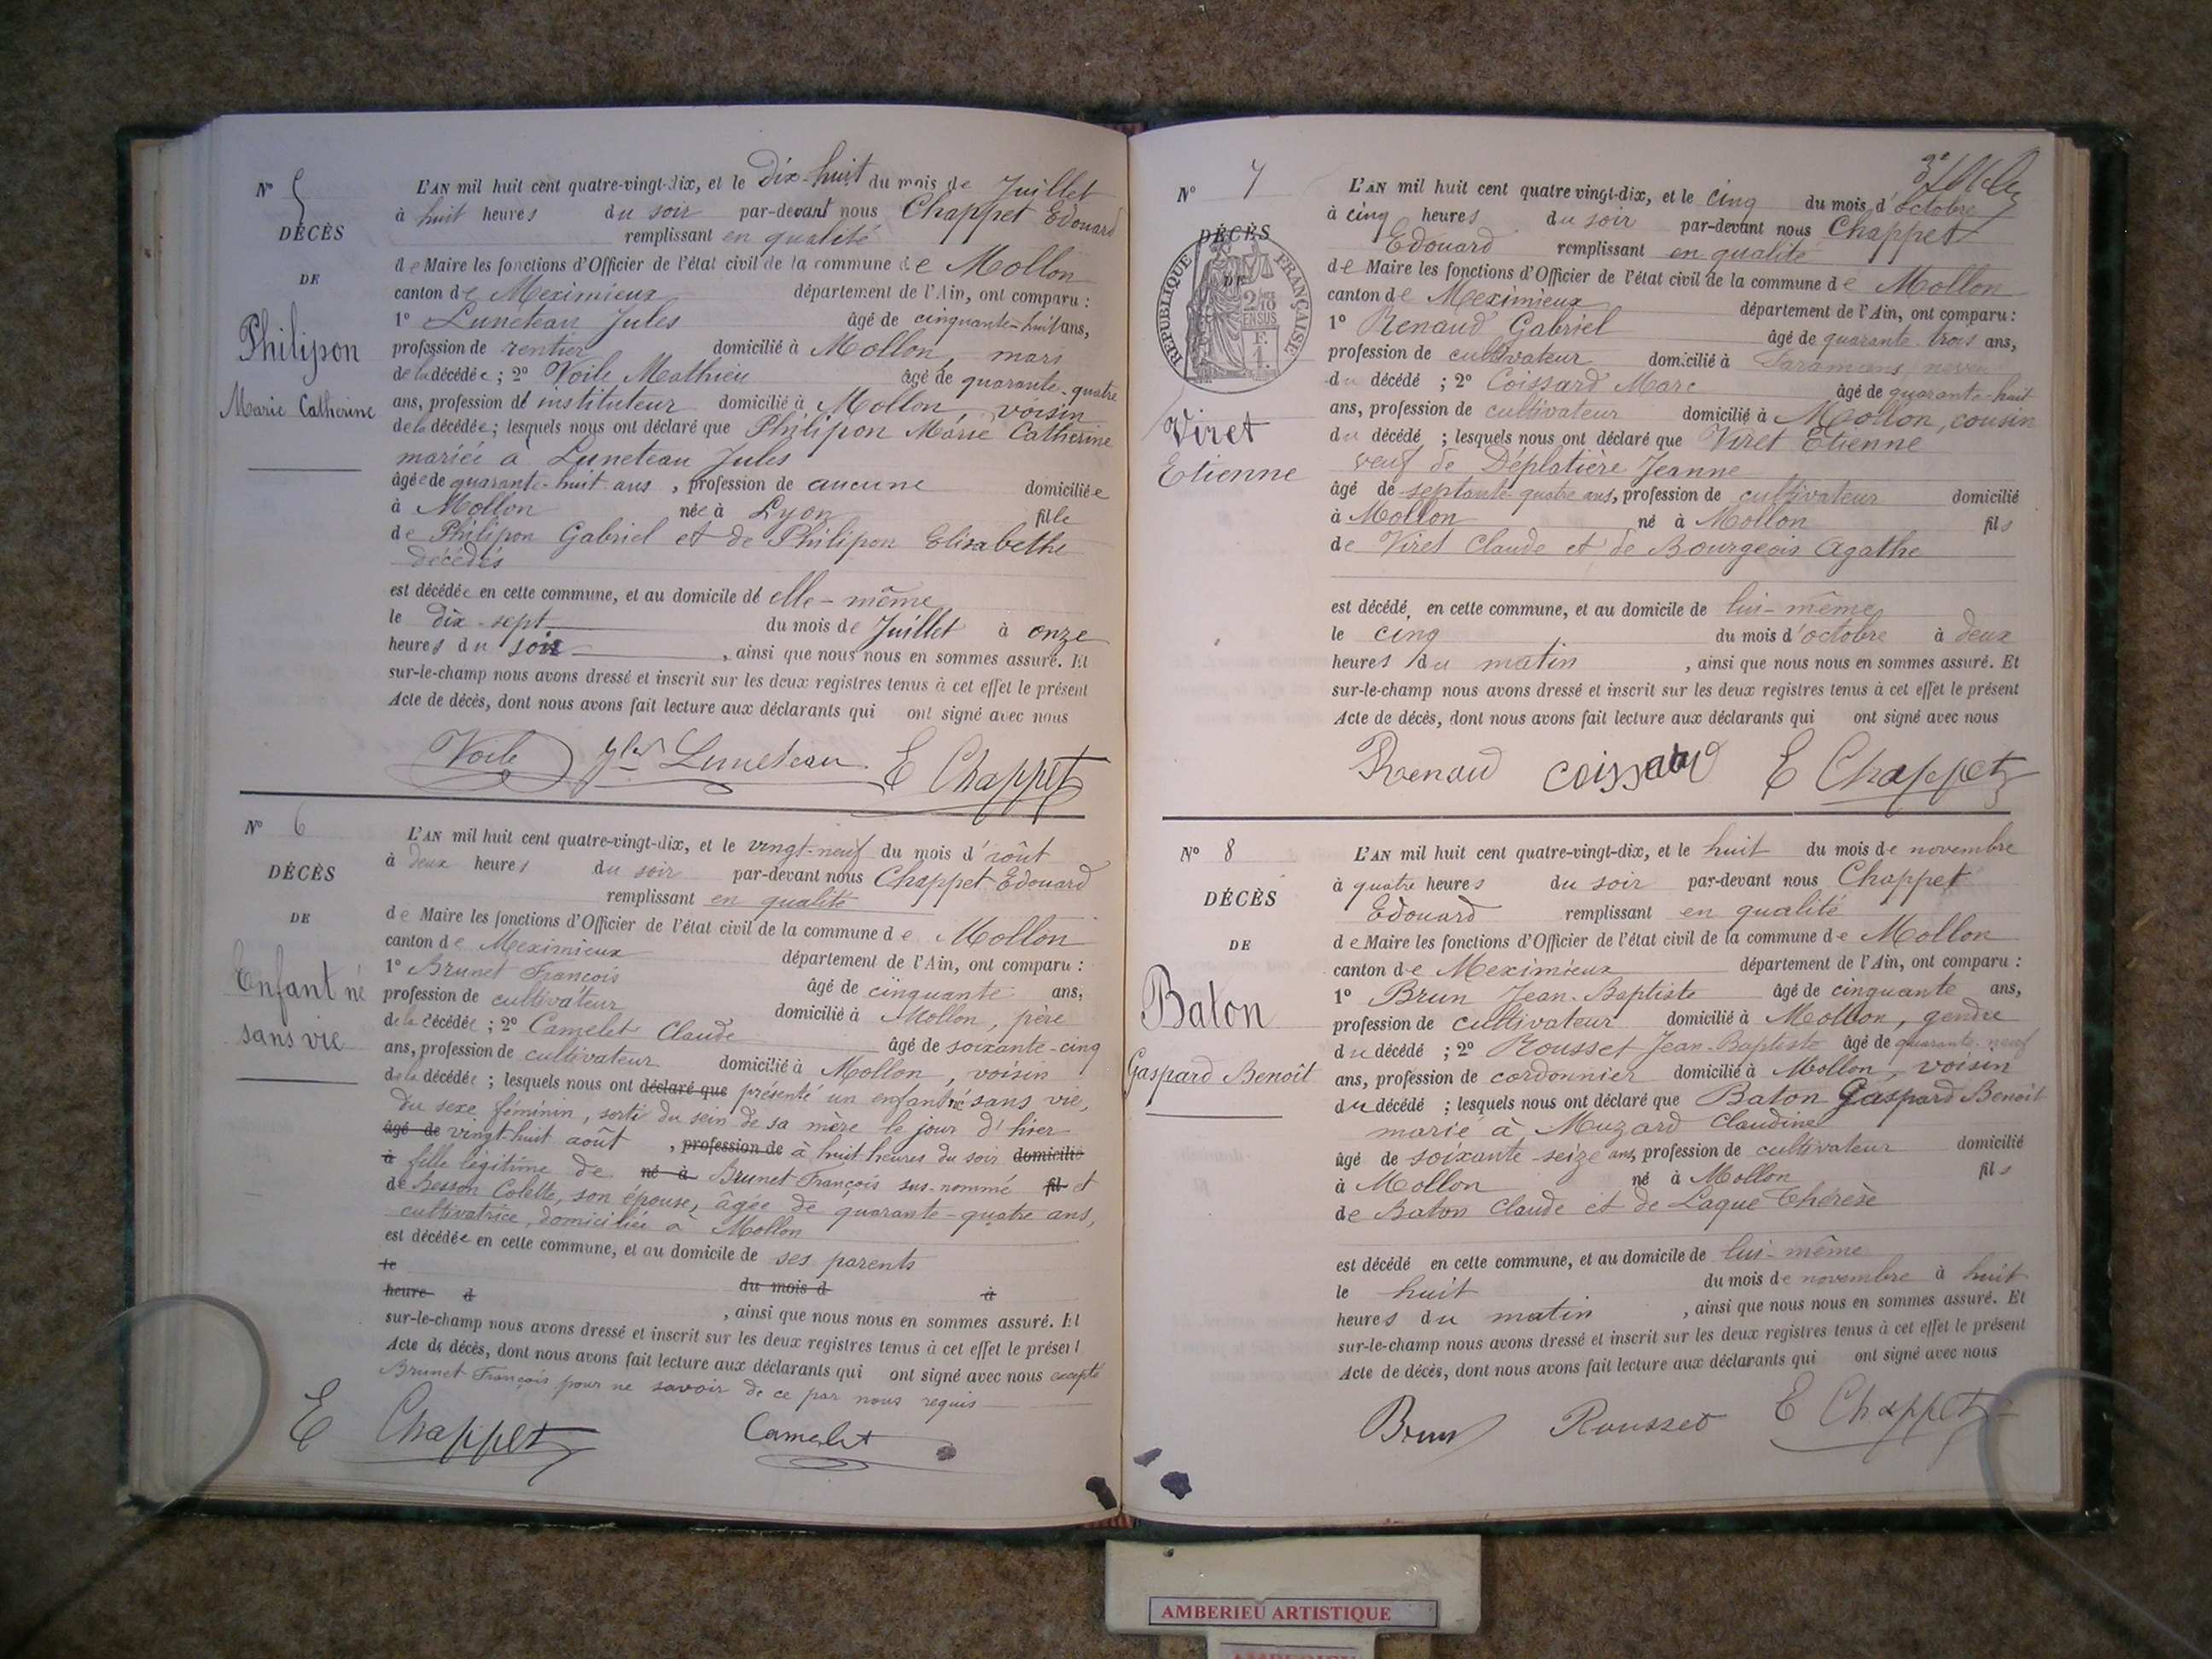 N° 5
DÉCÈS
DE
Philipon
Marie Catherine
L'AN mil huit cent quatre-vingt-dix, et le dix-huit du mois de Juillet
à huit heures du soir par-devant nous Chappet Edouard
remplissant en qualité
de Maire les fonctions d'Officier de l'état civil de la commune de Mollon
canton de Meximieux département de l'Ain, ont comparu :
1° Luneteau Jules âgé de cinquante-huit ans,
profession de rentier domicilié à Mollon, mari
de la décédée ; 2° Voile Mathieu âgé de quarante-quatre
ans, profession de instituteur domicilié à Mollon, voisin
de la décédée ; lesquels nous ont déclaré que Philipon Marie Catherine
mariée à Luneteau Jules
âgée de quarante-huit ans, profession de aucune domiciliée
à Mollon née à Lyon fille
de Philipon Gabriel et de Philipon Elisabethe
décédés
est décédée en cette commune, et au domicile de elle-même
le dix-sept du mois de Juillet à onze
heures du soir, ainsi que nous nous en sommes assuré. Et
sur-le-champ nous avons dressé et inscrit sur les deux registres tenus à cet effet le présent
Acte de décès, dont nous avons fait lecture aux déclarants qui ont signé avec nous
Voile Jles Luneteau E Chappet
N° 6
DÉCÈS
DE
Enfant né
sans vie
L'AN mil huit cent quatre-vingt-dix, et le vingt-neuf du mois d'août
à deux heures du soir par-devant nous Chappet Edouard
remplissant en qualité
de Maire les fonctions d'Officier de l'état civil de la commune de Mollon
canton de Meximieux département de l'Ain, ont comparu :
1° Brunet François âgé de cinquante ans,
profession de cultivateur domicilié à Mollon, père
de la décédée ; 2° Camelet Claude âgé de soixante-cinq
ans, profession de cultivateur domicilié à Mollon, voisin
de la décédée ; lesquels nous ont déclaré que présenté un enfant né sans vie,
du sexe féminin, sorti du sein de sa mère le jour d'hier
âgé de vingt-huit août, profession de à huit heures du soir domicilié
à fille légitime de né à Brunet François sus-nommé fil et
de Besson Colette, son épouse, âgée de quarante-quatre ans,
cultivatrice, domiciliée à Mollon
est décédée en cette commune, et au domicile de ses parents
le du mois d à
heure d, ainsi que nous nous en sommes assuré. Et
sur-le-champ nous avons dressé et inscrit sur les deux registres tenus à cet effet le présent
Acte de décès, dont nous avons fait lecture aux déclarants qui ont signé avec nous excepté
Brunet François pour ne savoir de ce par nous requis
E Chappet Camelet
N° 7
DÉCÈS
DE
RÉPUBLIQUE FRANÇAISE
Viret
Etienne
L'AN mil huit cent quatre vingt-dix, et le cinq du mois d'octobre
à cinq heures du soir par-devant nous Chappet
Edouard remplissant en qualité
de Maire les fonctions d'Officier de l'état civil de la commune de Mollon
canton de Meximieux département de l'Ain, ont comparu :
1° Renaud Gabriel âgé de quarante-trois ans,
profession de cultivateur domicilié à Faramans neveu
du décédé ; 2° Coissard Marc âgé de quarante-huit
ans, profession de cultivateur domicilié à Mollon, cousin
du décédé ; lesquels nous ont déclaré que Viret Etienne
veuf de Déplatière Jeanne
âgé de septante-quatre ans, profession de cultivateur domicilié
à Mollon né à Mollon fils
de Viret Claude et de Bourgeois Agathe
est décédé en cette commune, et au domicile de lui-même
le cinq du mois d'octobre à deux
heures du matin, ainsi que nous nous en sommes assuré. Et
sur-le-champ nous avons dressé et inscrit sur les deux registres tenus à cet effet le présent
Acte de décès, dont nous avons fait lecture aux déclarants qui ont signé avec nous
Renaud Coissard E Chappet
N° 8
DÉCÈS
DE
Baton
Gaspard Benoît
L'AN mil huit cent quatre-vingt-dix, et le huit du mois de novembre
à quatre heures du soir par-devant nous Chappet
Edouard remplissant en qualité
de Maire les fonctions d'Officier de l'état civil de la commune de Mollon
canton de Meximieux département de l'Ain, ont comparu :
1° Brun Jean-Baptiste âgé de cinquante ans,
profession de cultivateur domicilié à Mollon, gendre
du décédé ; 2° Rousset Jean-Baptiste âgé de quarante-neuf
ans, profession de cordonnier domicilié à Mollon, voisin
du décédé ; lesquels nous ont déclaré que Baton Gaspard Benoît
marié à Muzard Claudine
âgé de soixante seize ans, profession de cultivateur domicilié
à Mollon né à Mollon fils
de Baton Claude et de Laque Thérèse
est décédé en cette commune, et au domicile de lui-même
le huit du mois de novembre à huit
heures du matin, ainsi que nous nous en sommes assuré. Et
sur-le-champ nous avons dressé et inscrit sur les deux registres tenus à cet effet le présent
Acte de décès, dont nous avons fait lecture aux déclarants qui ont signé avec nous
Brun Rousset E Chappet
AMBERIEU ARTISTIQUE
AMBERIEU